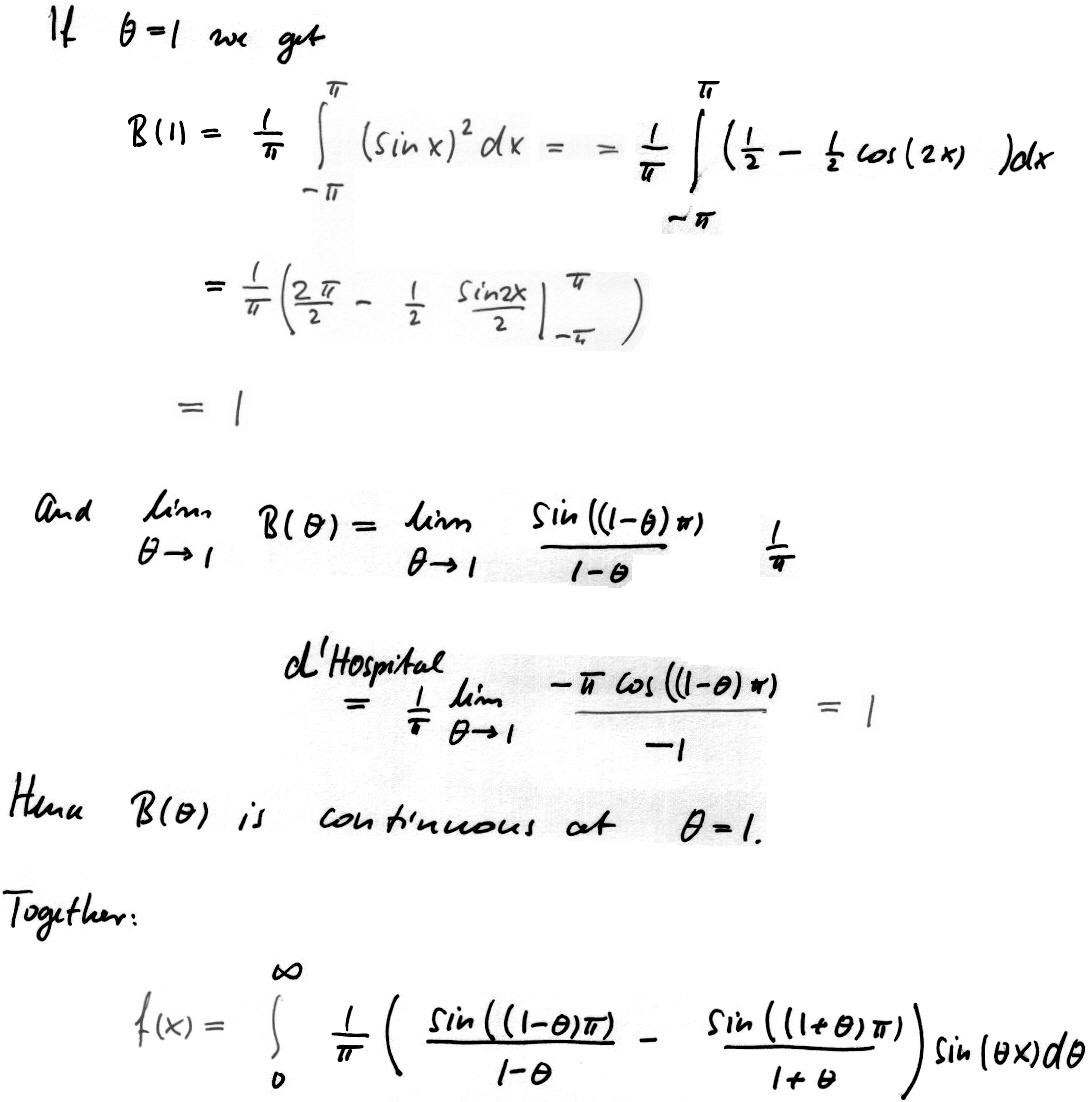 If θ=1 we get
B(1) = 1/π ∫_{-π}^{π} (sin x)² dx = = 1/π ∫_{-π}^{π} (1/2 - 1/2 cos(2x) )dx
= 1/π (2π/2 - 1/2 sin2x/2 |_{-π}^{π} )
= 1
And lim_{θ→1} B(θ) = lim_{θ→1} sin((1-θ)π)/(1-θ) 1/π
d'Hospital
= 1/π lim_{θ→1} -π cos((1-θ)π)/(-1) = 1
Hence B(θ) is continuous at θ=1.
Together:
f(x) = ∫_{0}^{∞} 1/π ( sin((1-θ)π)/(1-θ) - sin((1+θ)π)/(1+θ) ) sin(θx)dθ